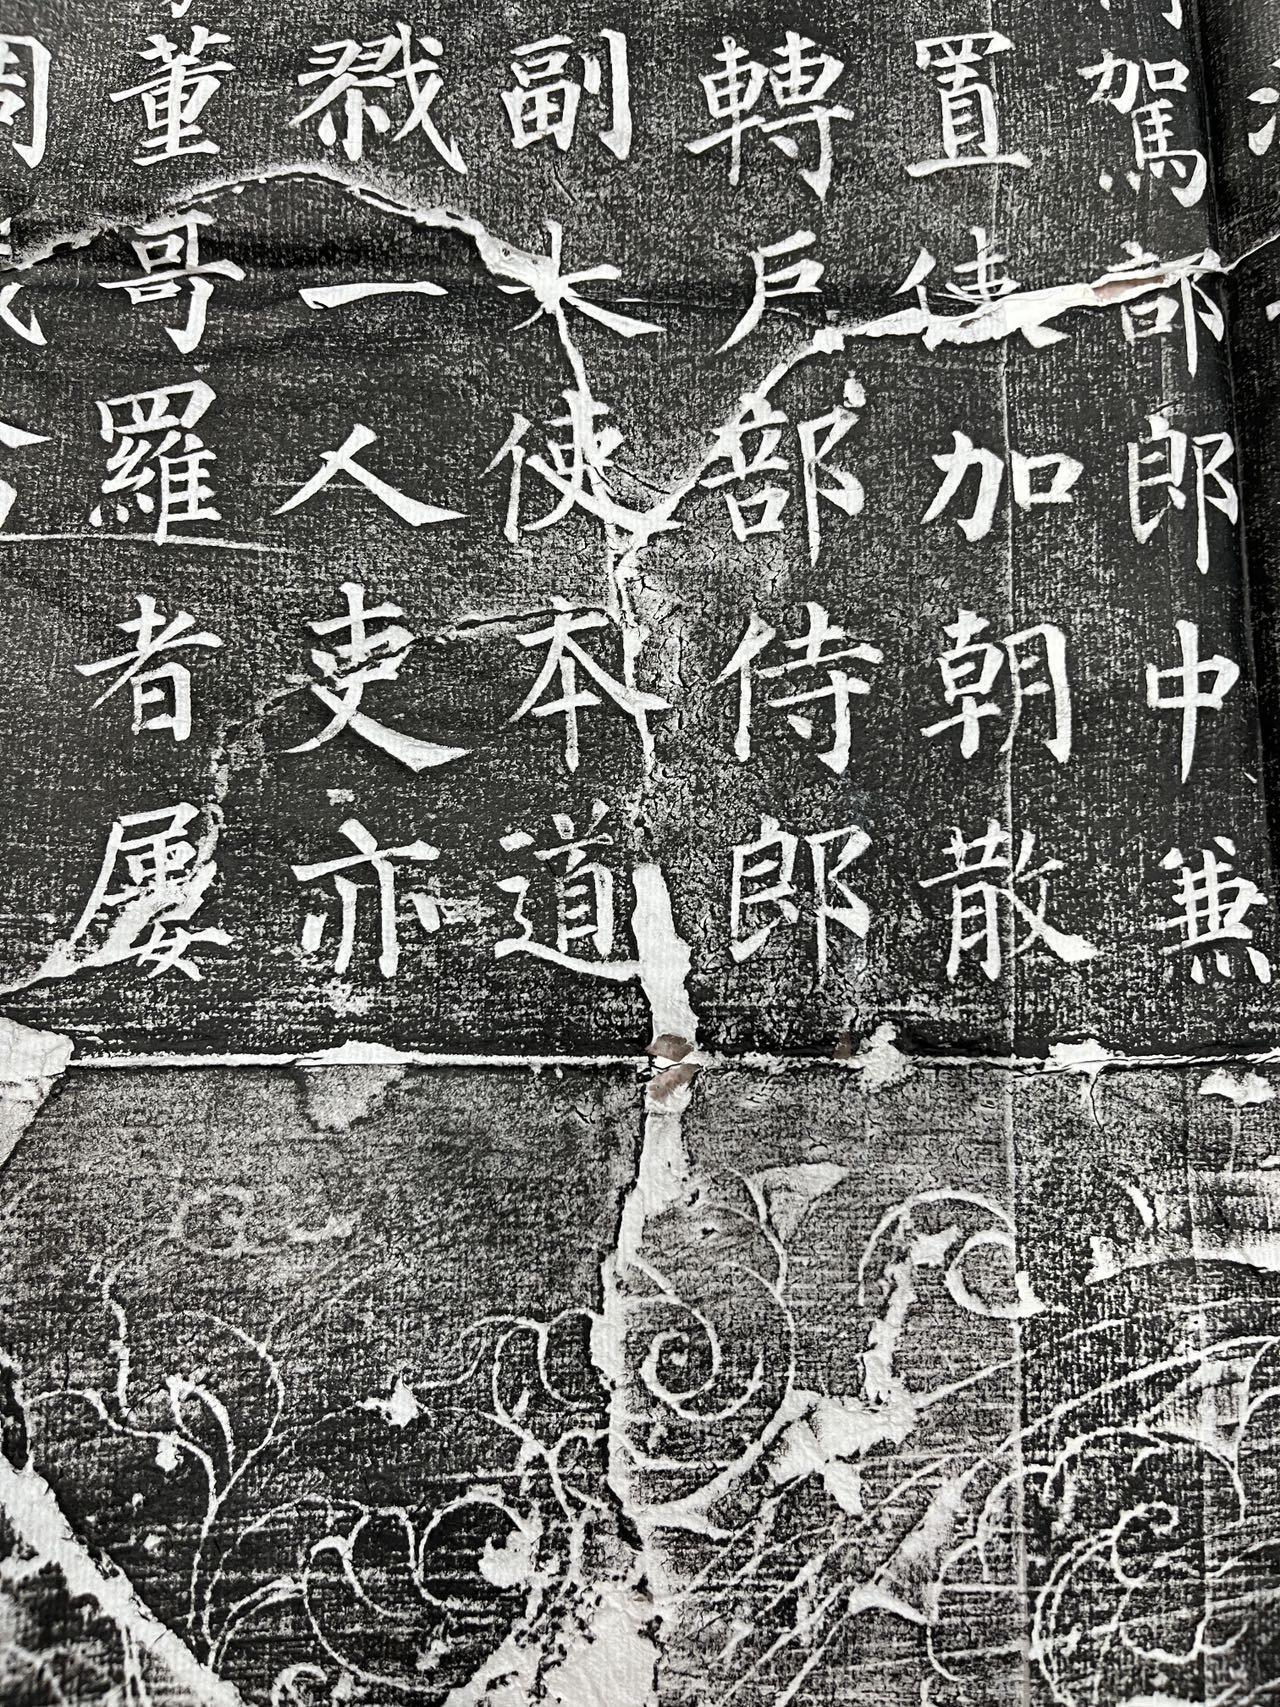 駕部郎中兼
置使加朝散
轉戶部侍郎
副大使本道
戮一人吏亦
董哥羅者屢